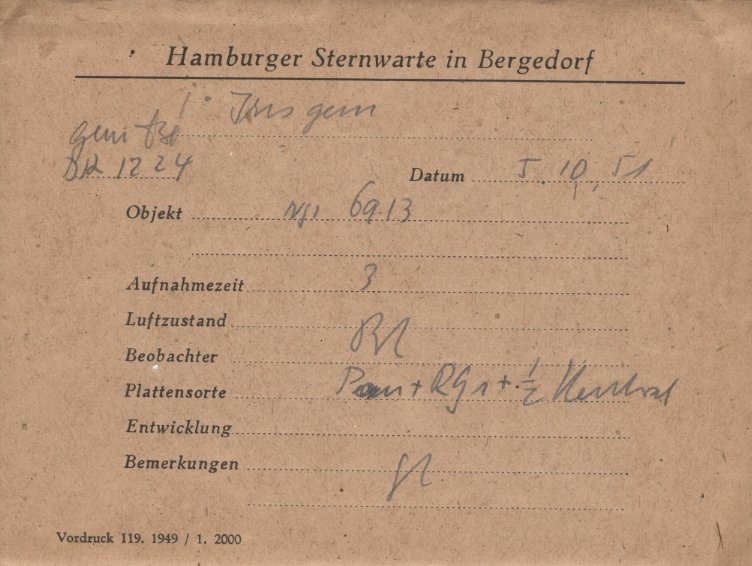 Hamburger Sternwarte in Bergedorf
gem
DR 1224
Datum 5.10.51
Objekt 6913
Aufnahmezeit 3
Luftzustand
Beobachter
Plattensorte + RG1 + ½
Entwicklung
Bemerkungen
Vordruck 119. 1949 / 1. 2000